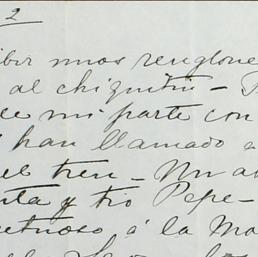 2
ibir unos renglone
al chiquitin -
de mi parte con
han llamado a
el tren - Un ab
ta y tio Pepe -
etuoso á la Ma